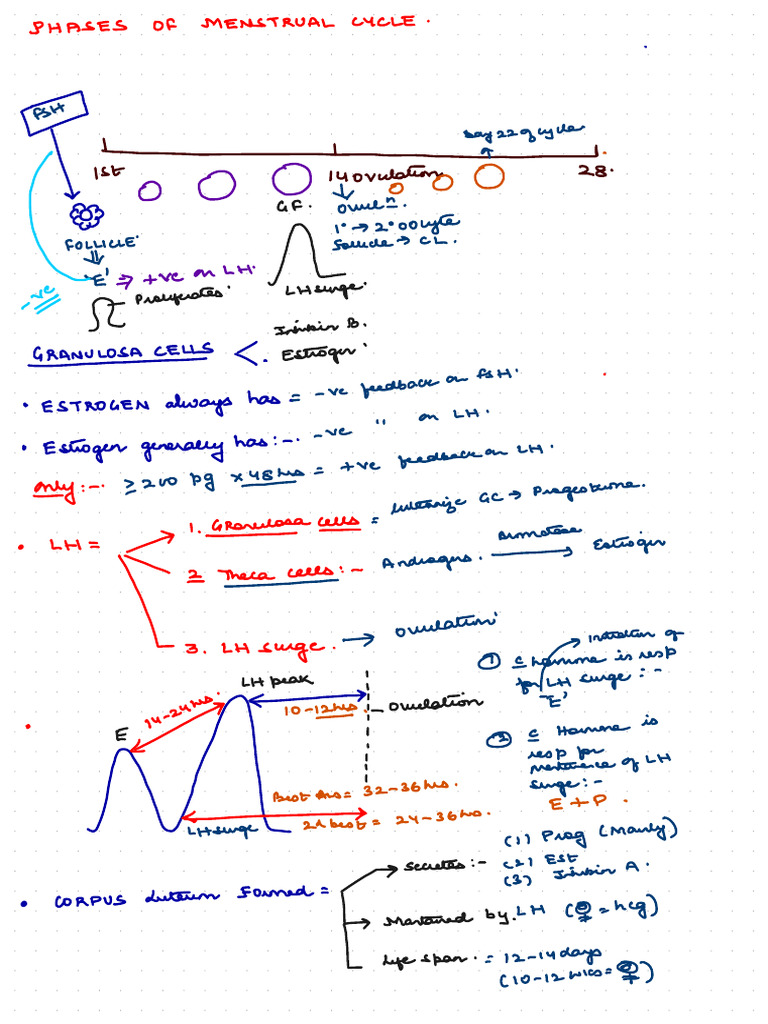 PHASES OF MENSTRUAL CYCLE.
FSH
Day 22 of cycle
1st
14 ovulation
28.
GF.
Ovul n.
1° → 2° oocyte
follicle → CL.
FOLLICLE
'E' ⇒ +ve on LH.
-ve
Proliferates.
LH surge.
Inhibin B.
GRANULOSA CELLS <
Estrogen
• ESTROGEN always has = -ve feedback on FSH.
• Estrogen generally has :- -ve " on LH.
only :- ≥ 200 pg × 48 hrs = +ve feedback on LH.
• LH =
1. Granulosa cells = luteinize GC → Progesterone.
2 Theca cells :- Androgens. Aromatase → Estrogen
3. LH surge. → ovulation
① c hormone is resp
initiation of
for LH surge :-
'E'
LH peak
14-24 hrs.
10-12 hrs.
ovulation
E
② c Hormone is
resp for
maintenance of LH
surge :-
E + P.
Best Ans = 32-36 hrs.
LH surge
2nd best = 24-36 hrs.
• CORPUS luteum formed =
secretes :-
(1) Prog (Mainly)
(2) Est
(3) Inhibin A.
Maintained by LH (♀ = hcg)
Life span. = 12-14 days
(10-12 wks = ♀)